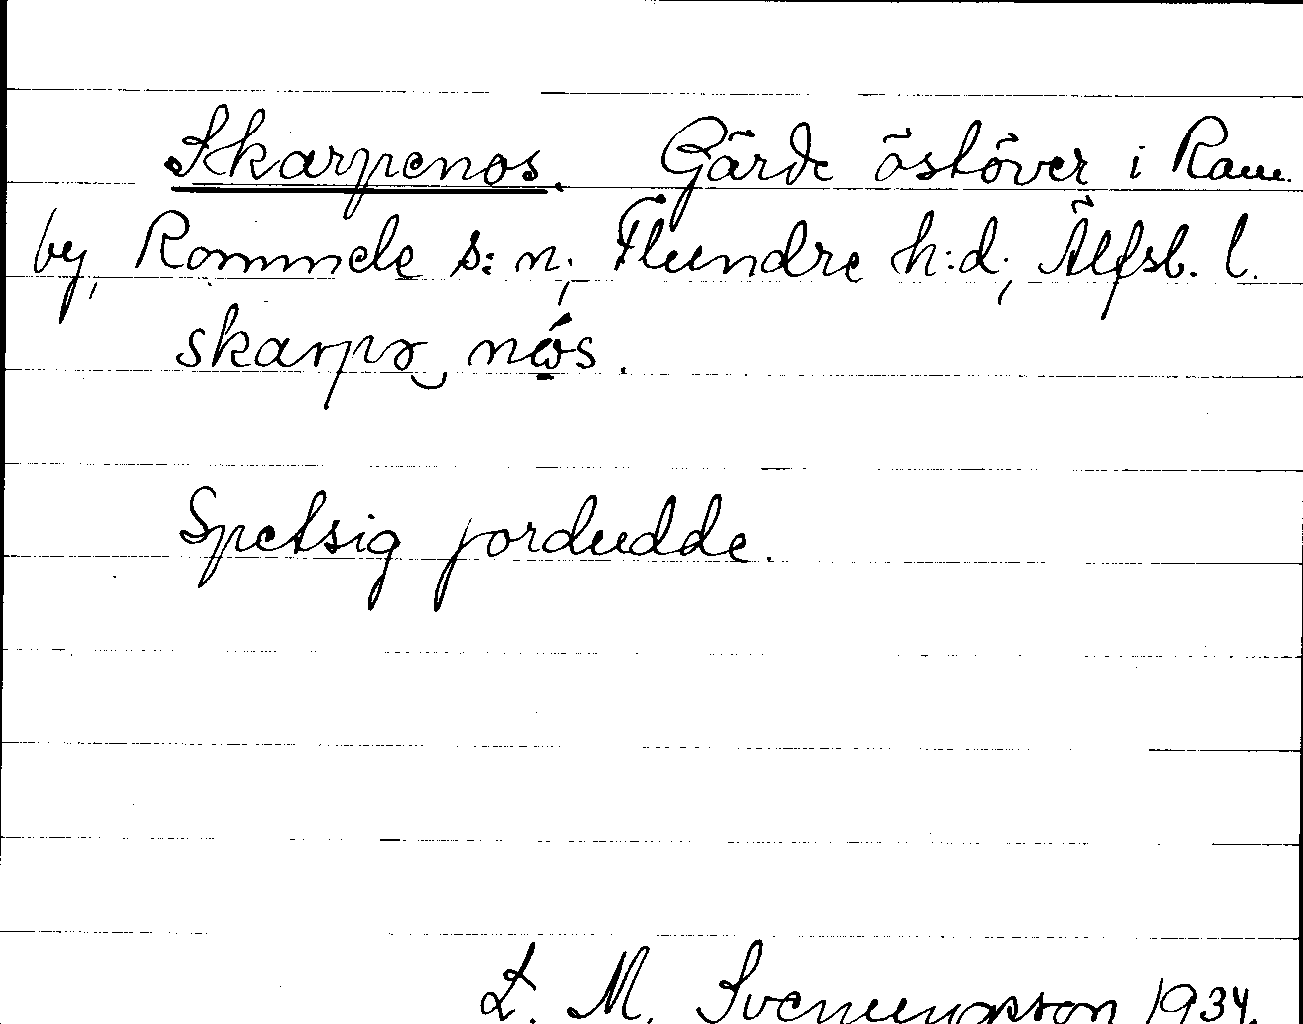 Skarpenos. Gärde östöver i Ram
by, Rommele s:n, Flundre h:d, Älfsb. l.
skarpə nós.
Spetsig jordudde.
L. M. Svenungsson 1934.